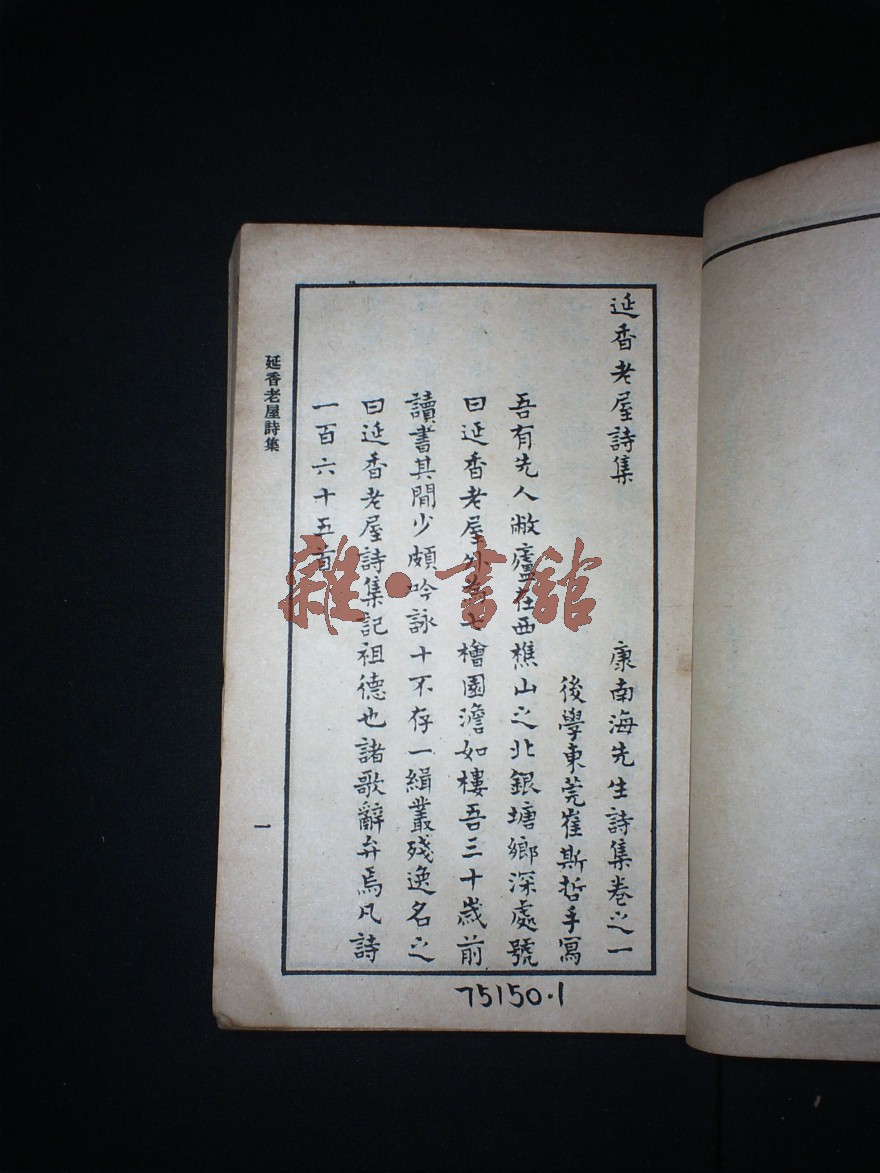 延香老屋詩集 康南海先生詩集卷之一
後學東莞崔斯哲手寫
吾有先人敝廬在西樵山之北銀塘鄉深處號
曰延香老屋外為七檜園澹如樓吾三十歲前
讀書其間少頗吟詠十不存一緝叢殘遂名之
曰延香老屋詩集記祖德也諸歌辭弁焉凡詩
一百六十五首
延香老屋詩集
一
75150.1
雜·書館